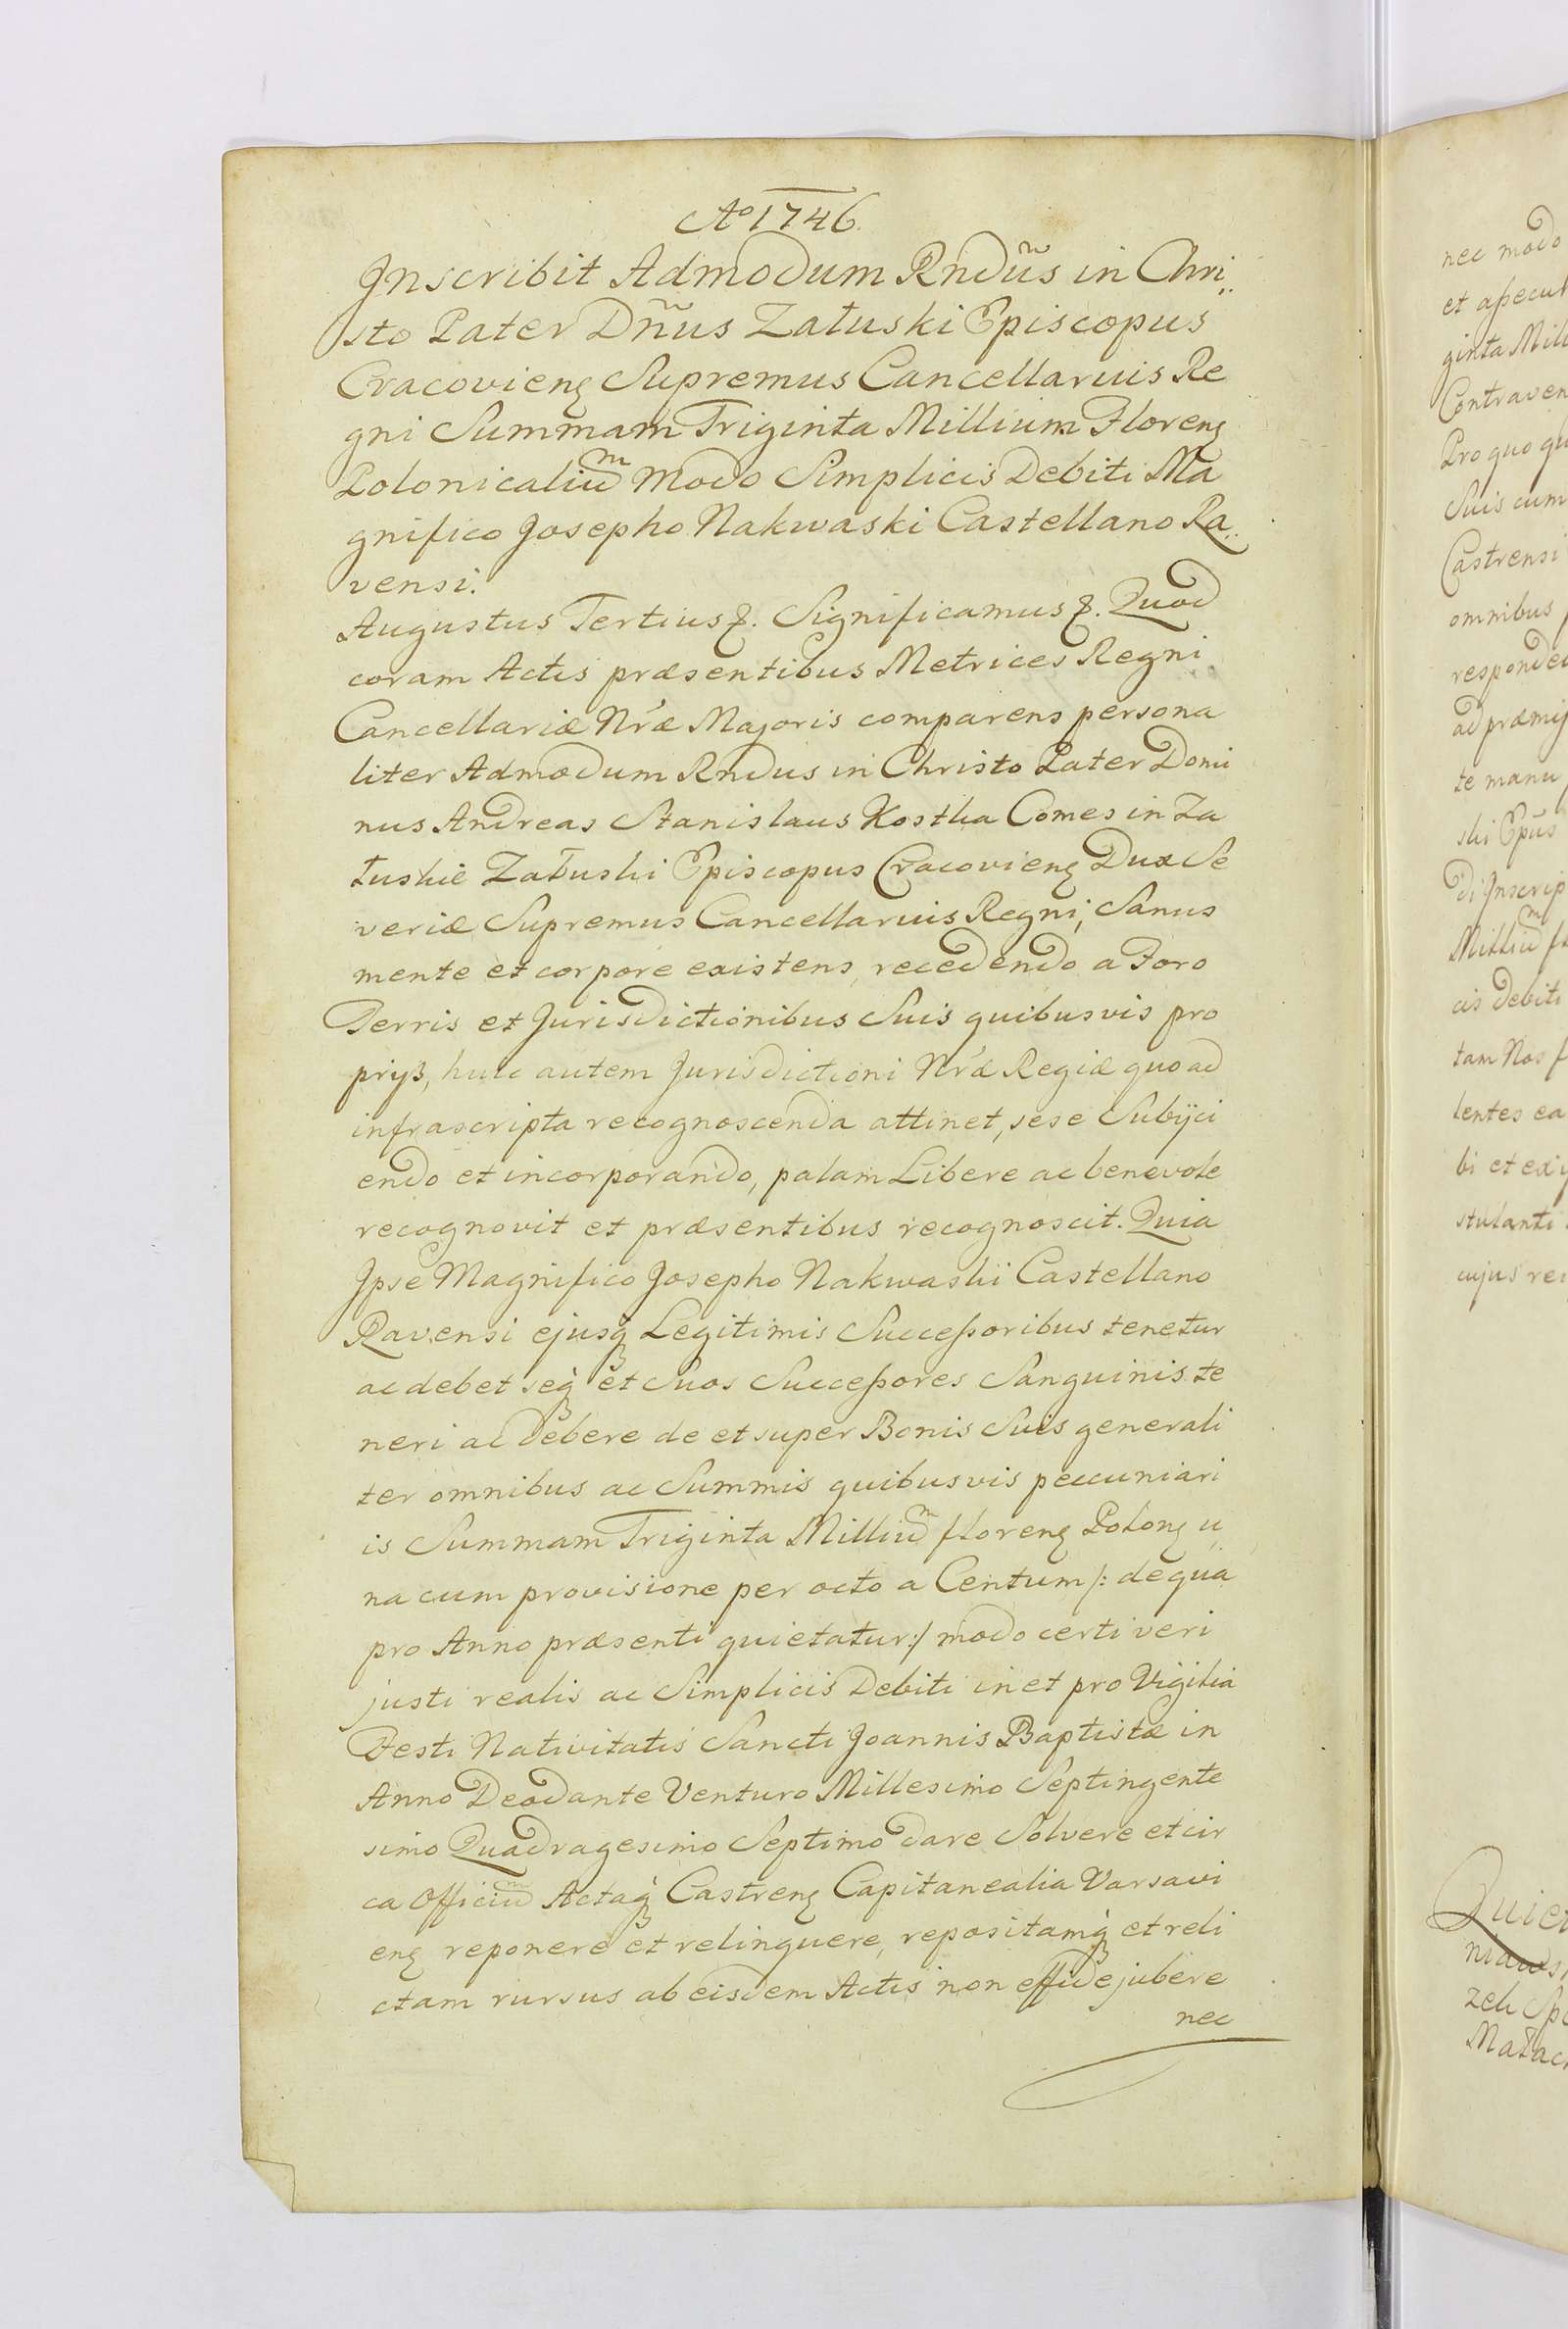 Ao 1746.
Inscribit Admodum Rndũs in Chri„
sto Pater Dñus Załuski Episcopus
Cracovienȝ Supremus Cancellarius Re
gni Summam Triginta Millium Florenȝ
Polonicaliũm Modo Simplicis Debiti Ma
gnifico Josepho Nakwaski Castellano Ra„
vensi.
Augustus Tertius ꝛ. Significamus ꝛ. Quod
coram Actis præsentibus Metrices Regni
Cancellariæ Nr̃æ Majoris comparens persona
liter Admodum Rndus in Christo Pater Domi
nus Andreas Stanislaus Kostka Comes in Za
łuskie Załuski Episcopus Cracovienȝ Dux Se
veriæ Supremus Cancellarius Regni, Sanus
mente et corpore existens, recedendo a Foro
Terris et Jurisdictionibus Suis quibusvis pro
prijs, huic autem Jurisdictioni Nr̃æ Regiæ quoad
infrascripta recognoscenda attinet, sese Subijci
endo et incorporando, palam Libere ac benevole
recognovit et præsentibus recognoscit. Quia
Ipse Magnifico Josepho Nakwaski Castellano
Ravensi ejusq̃ Legitimis Successoribus tenetur
ac debet seq̃ et Suos Successores Sanguinis te
neri ac debere de et super Bonis Suis generali
ter omnibus ac Summis quibusvis peccuniari
is Summam Triginta Milliũm florenȝ Polonȝ u„
na cum provisione per octo a Centum /: de qua
pro Anno præsenti quietatur :/ modo certi veri
justi realis ac Simplicis Debiti in et pro Vigilia
Festi Nativitatis Sancti Joannis Baptistæ in
Anno Deo dante Venturo Millesimo Septingente
simo Quadragesimo Septimo dare Solvere et cir
ca Officiũm Actaq̃ Castrenȝ Capitanealia Varsavi
enȝ reponere et relinquere, repositamq̃ et reli
ctam rursus ab eisdem Actis non effidejubere
nec
nec modo
et assecut
ginta Mill
Contraven
Pro quo qu
Suis cum
Castrensi
omnibus
responde
ad præmis
te manu
ski Epũs
di Inscrip
Milliũm fl
cis debiti
tam Nos
lentes ea
bi et exi
stulanti
cujus rei
Quiet
zeli
Małach